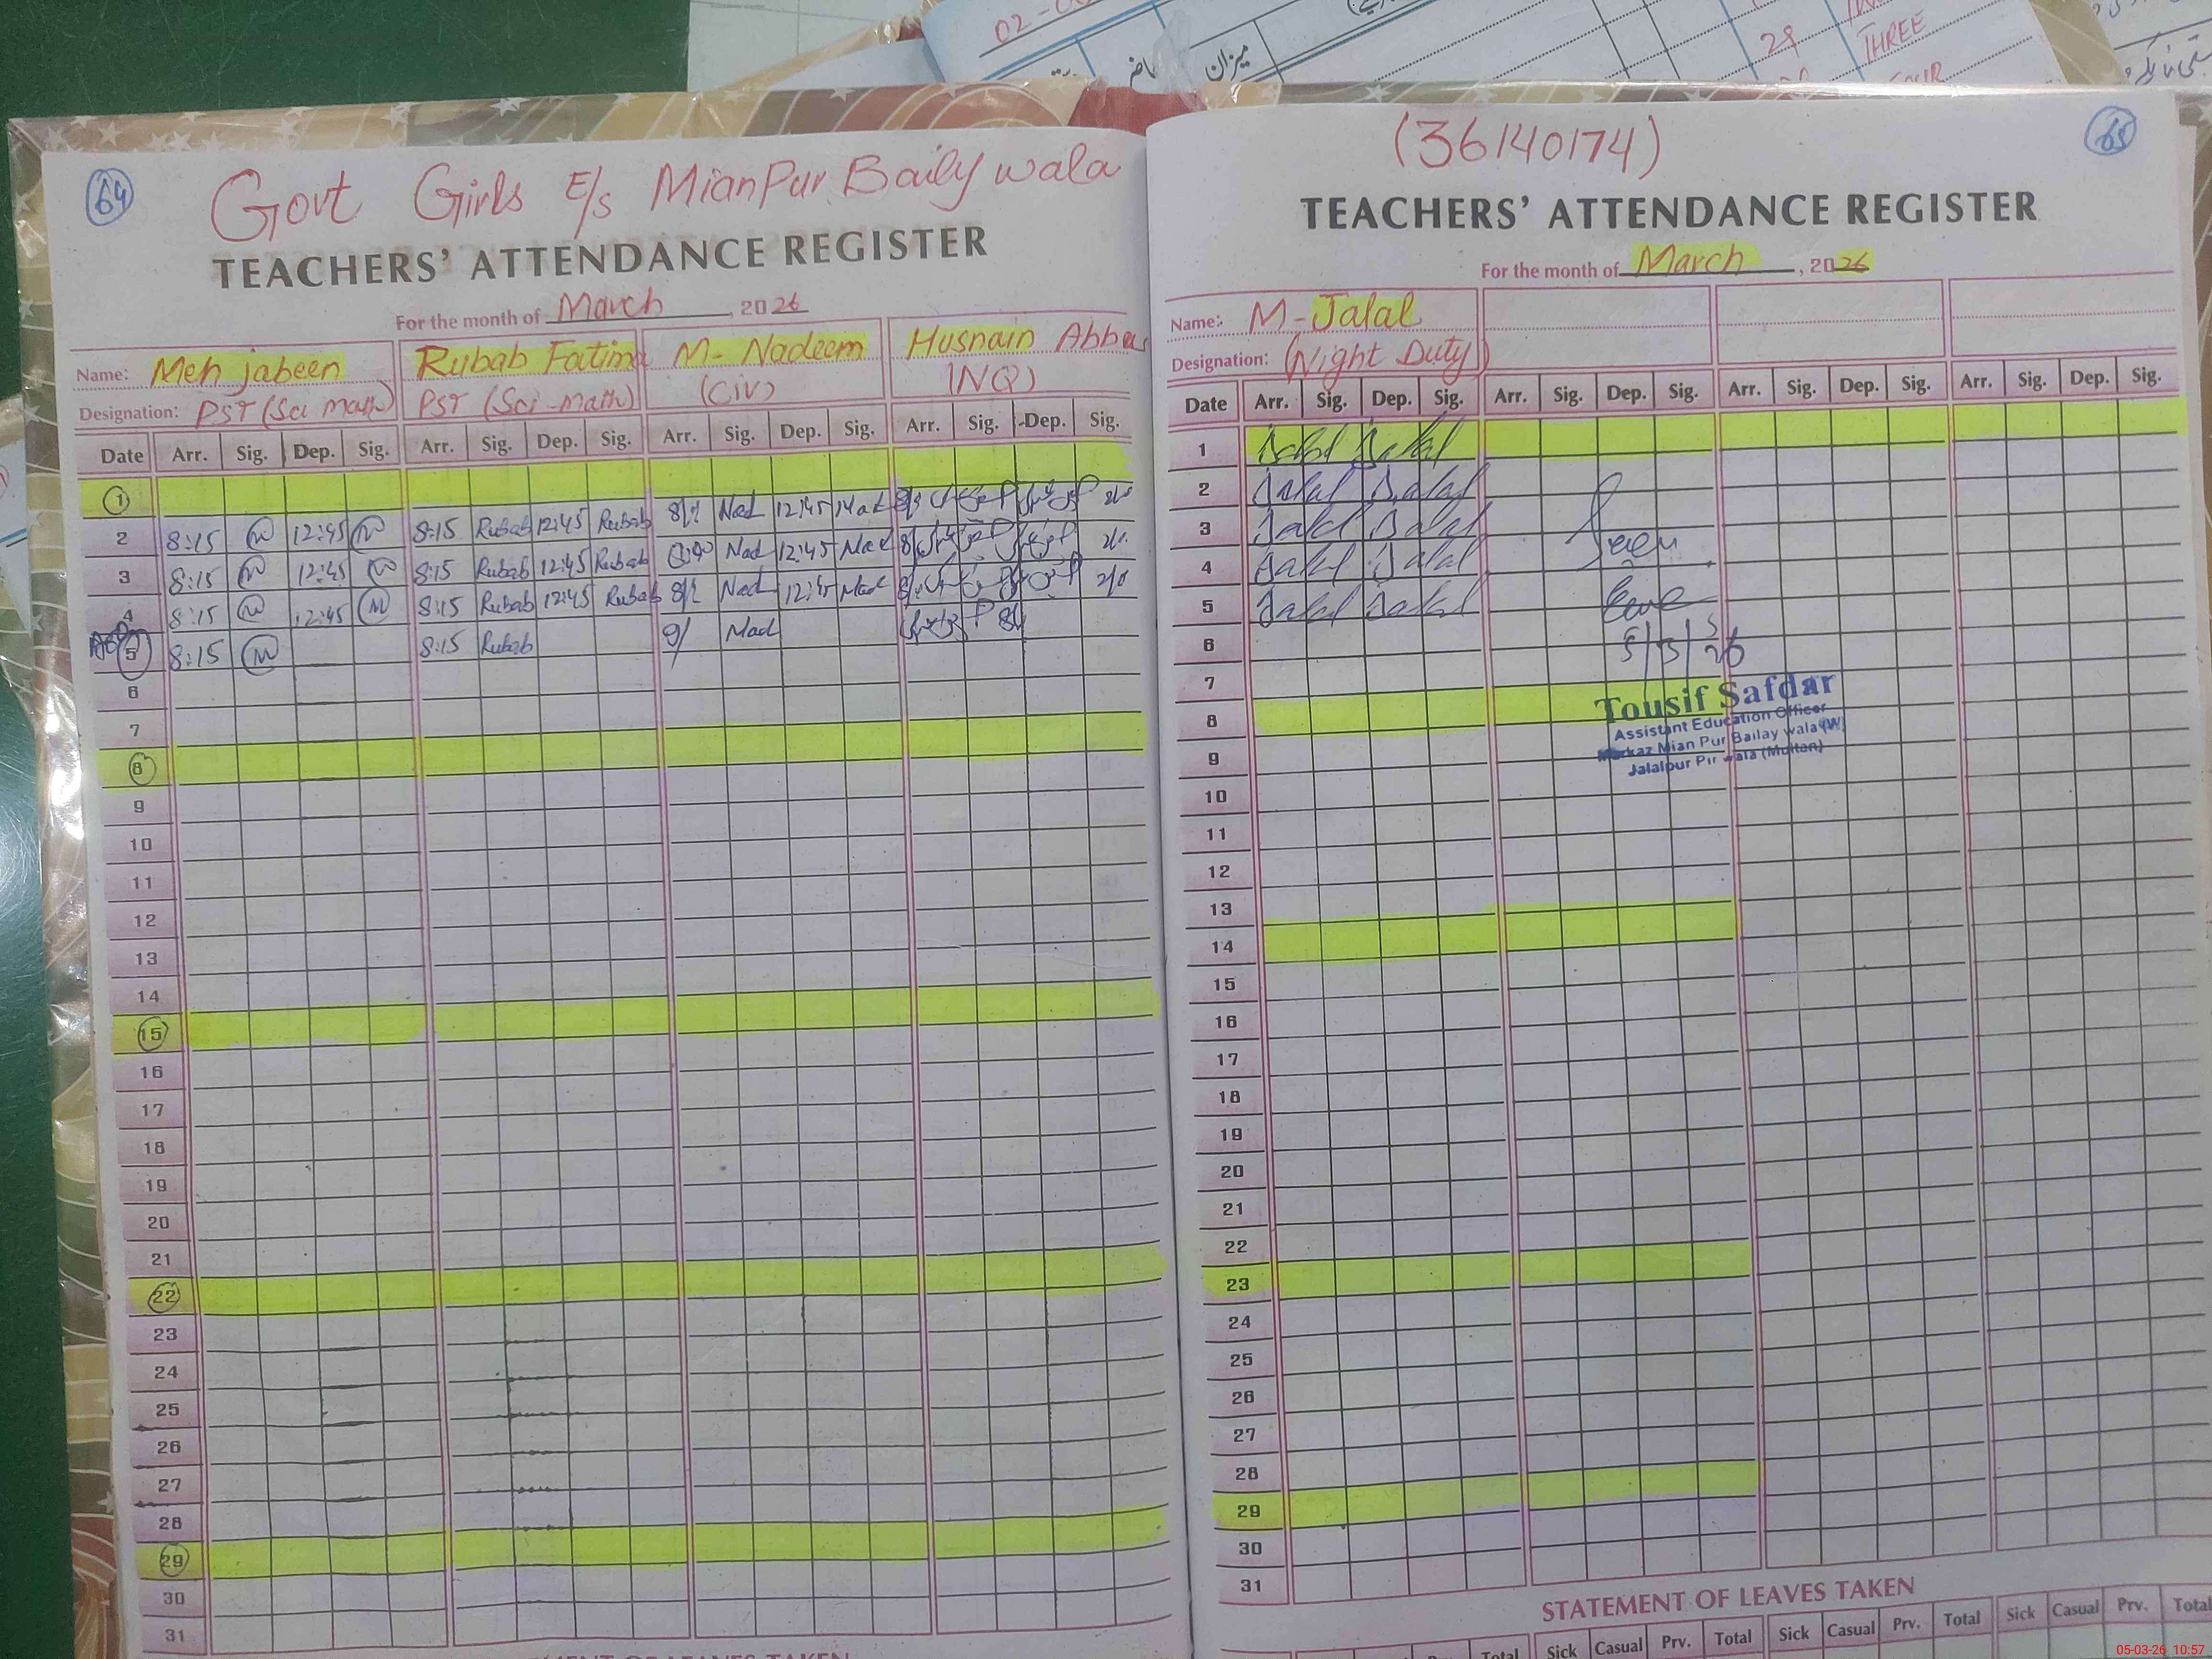 02-0
میزان
29
THREE
64
Govt Girls E/s MianPur Baily wala
TEACHERS' ATTENDANCE REGISTER
For the month of March, 2026
Name: Meh jabeen Rubab Fatima M- Nadeem Husnain Abbas
Designation: PST (Sci math) PST (Sci-math) (Civ) (NQ)
Date Arr. Sig. Dep. Sig. Arr. Sig. Dep. Sig. Arr. Sig. Dep. Sig. Arr. Sig. Dep. Sig.
1
2 8:15 12:45 8:15 Rubab 12:45 Rubab Nad 12:45
3 8:15 12:45 8:15 Rubab 12:45 Rubab Nad 12:45
4 8:15 12:45 8:15 Rubab 12:45 Rubab Nad 12:45
5 8:15 8:15 Rubab 9/
6
7
8
9
10
11
12
13
14
15
16
17
18
19
20
21
22
23
24
25
26
27
28
29
30
31
65
(36140174)
TEACHERS' ATTENDANCE REGISTER
For the month of March, 2026
Name: M-Jalal
Designation: (Night Duty)
Date Arr. Sig. Dep. Sig. Arr. Sig. Dep. Sig. Arr. Sig. Dep. Sig. Arr. Sig. Dep. Sig.
1 Jalal Jalal
2 Jalal Jalal
3 Jalal Jalal
4 Jalal Jalal
5 Jalal Jalal
6
7
8
9
10
11
12
13
14
15
16
17
18
19
20
21
22
23
24
25
26
27
28
29
30
31
Tousif Safdar
Assistant Education Officer
Markaz Mian Pur Bailay wala (W)
Jalalpur Pir wala (Multan)
STATEMENT OF LEAVES TAKEN
Total Sick Casual Prv. Total Sick Casual Prv. Total Sick Casual Prv. Total
05-03-26 10:57